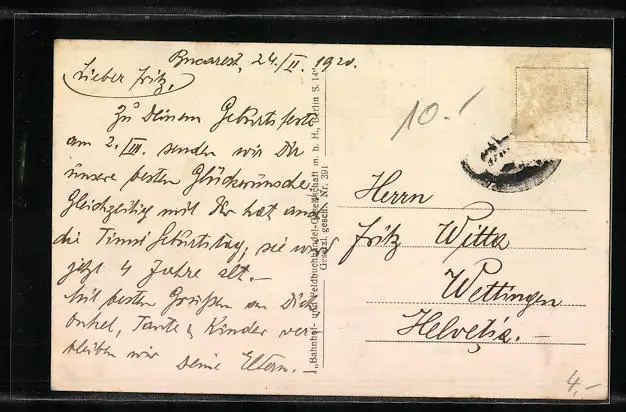 Bucarest, 24./II. 1920.
Lieber Fritz,
Zu Deinem Geburtsfeste
am 2. III. senden wir Dir
unsere besten Glückwünsche
Gleichzeitig mit Dir hat auch
die Timmi Geburtstag, sie wird
jetzt 4 Jahre alt.-
Mit besten Grüßen an Dich
Onkel, Tante & Kinder ver-
bleiben wir
Deine Eltern.-
"Bahnhof- und Feldbuchhandel-Gesellschaft m. b. H., Berlin S. 14"
Gesetzl. gesch. Nr. 391
10.-
Herrn
Fritz Witta
Wettingen
Helvetia.-
4,-